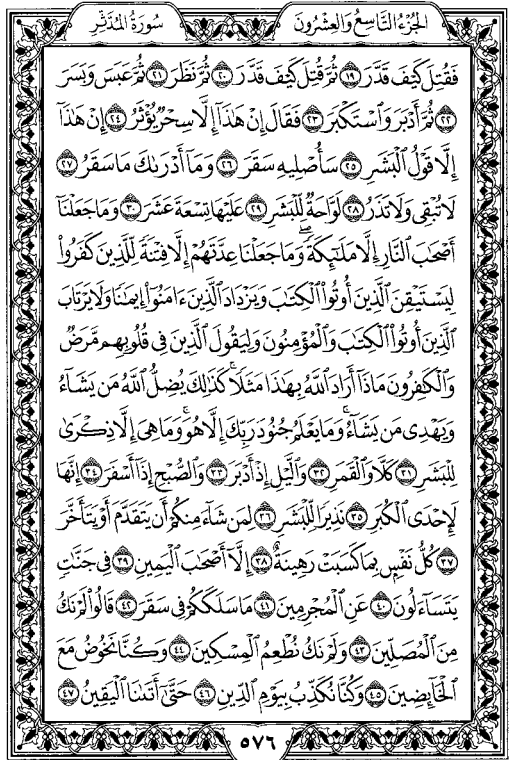 الجزء التاسع والعشرون
سورة المدثر
فَقُتِلَ كَيْفَ قَدَّرَ ١٩ ثُمَّ قُتِلَ كَيْفَ قَدَّرَ ٢٠ ثُمَّ نَظَرَ ٢١ ثُمَّ عَبَسَ وَبَسَرَ
٢٢ ثُمَّ أَدْبَرَ وَٱسْتَكْبَرَ ٢٣ فَقَالَ إِنْ هَٰذَآ إِلَّا سِحْرٌ يُؤْثَرُ ٢٤ إِنْ هَٰذَآ
إِلَّا قَوْلُ ٱلْبَشَرِ ٢٥ سَأُصْلِيهِ سَقَرَ ٢٦ وَمَآ أَدْرَىٰكَ مَا سَقَرُ ٢٧
لَا تُبْقِى وَلَا تَذَرُ ٢٨ لَوَّاحَةٌ لِّلْبَشَرِ ٢٩ عَلَيْهَا تِسْعَةَ عَشَرَ ٣٠ وَمَا جَعَلْنَآ
أَصْحَٰبَ ٱلنَّارِ إِلَّا مَلَٰٓئِكَةً ۙ وَمَا جَعَلْنَا عِدَّتَهُمْ إِلَّا فِتْنَةً لِّلَّذِينَ كَفَرُوا۟
لِيَسْتَيْقِنَ ٱلَّذِينَ أُوتُوا۟ ٱلْكِتَٰبَ وَيَزْدَادَ ٱلَّذِينَ ءَامَنُوٓا۟ إِيمَٰنًا ۙ وَلَا يَرْتَابَ
ٱلَّذِينَ أُوتُوا۟ ٱلْكِتَٰبَ وَٱلْمُؤْمِنُونَ ۙ وَلِيَقُولَ ٱلَّذِينَ فِى قُلُوبِهِم مَّرَضٌ
وَٱلْكَٰفِرُونَ مَاذَآ أَرَادَ ٱللَّهُ بِهَٰذَا مَثَلًا ۚ كَذَٰلِكَ يُضِلُّ ٱللَّهُ مَن يَشَآءُ
وَيَهْدِى مَن يَشَآءُ ۚ وَمَا يَعْلَمُ جُنُودَ رَبِّكَ إِلَّا هُوَ ۚ وَمَا هِىَ إِلَّا ذِكْرَىٰ
لِلْبَشَرِ ٣١ كَلَّا وَٱلْقَمَرِ ٣٢ وَٱلَّيْلِ إِذْ أَدْبَرَ ٣٣ وَٱلصُّبْحِ إِذَآ أَسْفَرَ ٣٤ إِنَّهَا
لَإِحْدَى ٱلْكُبَرِ ٣٥ نَذِيرًا لِّلْبَشَرِ ٣٦ لِمَن شَآءَ مِنكُمْ أَن يَتَقَدَّمَ أَوْ يَتَأَخَّرَ
٣٧ كُلُّ نَفْسٍۭ بِمَا كَسَبَتْ رَهِينَةٌ ٣٨ إِلَّآ أَصْحَٰبَ ٱلْيَمِينِ ٣٩ فِى جَنَّٰتٍ
يَتَسَآءَلُونَ ٤٠ عَنِ ٱلْمُجْرِمِينَ ٤١ مَا سَلَكَكُمْ فِى سَقَرَ ٤٢ قَالُوا۟ لَمْ نَكُ
مِنَ ٱلْمُصَلِّينَ ٤٣ وَلَمْ نَكُ نُطْعِمُ ٱلْمِسْكِينَ ٤٤ وَكُنَّا نَخُوضُ مَعَ
ٱلْخَآئِضِينَ ٤٥ وَكُنَّا نُكَذِّبُ بِيَوْمِ ٱلدِّينِ ٤٦ حَتَّىٰٓ أَتَىٰنَا ٱلْيَقِينُ ٤٧
٥٧٦